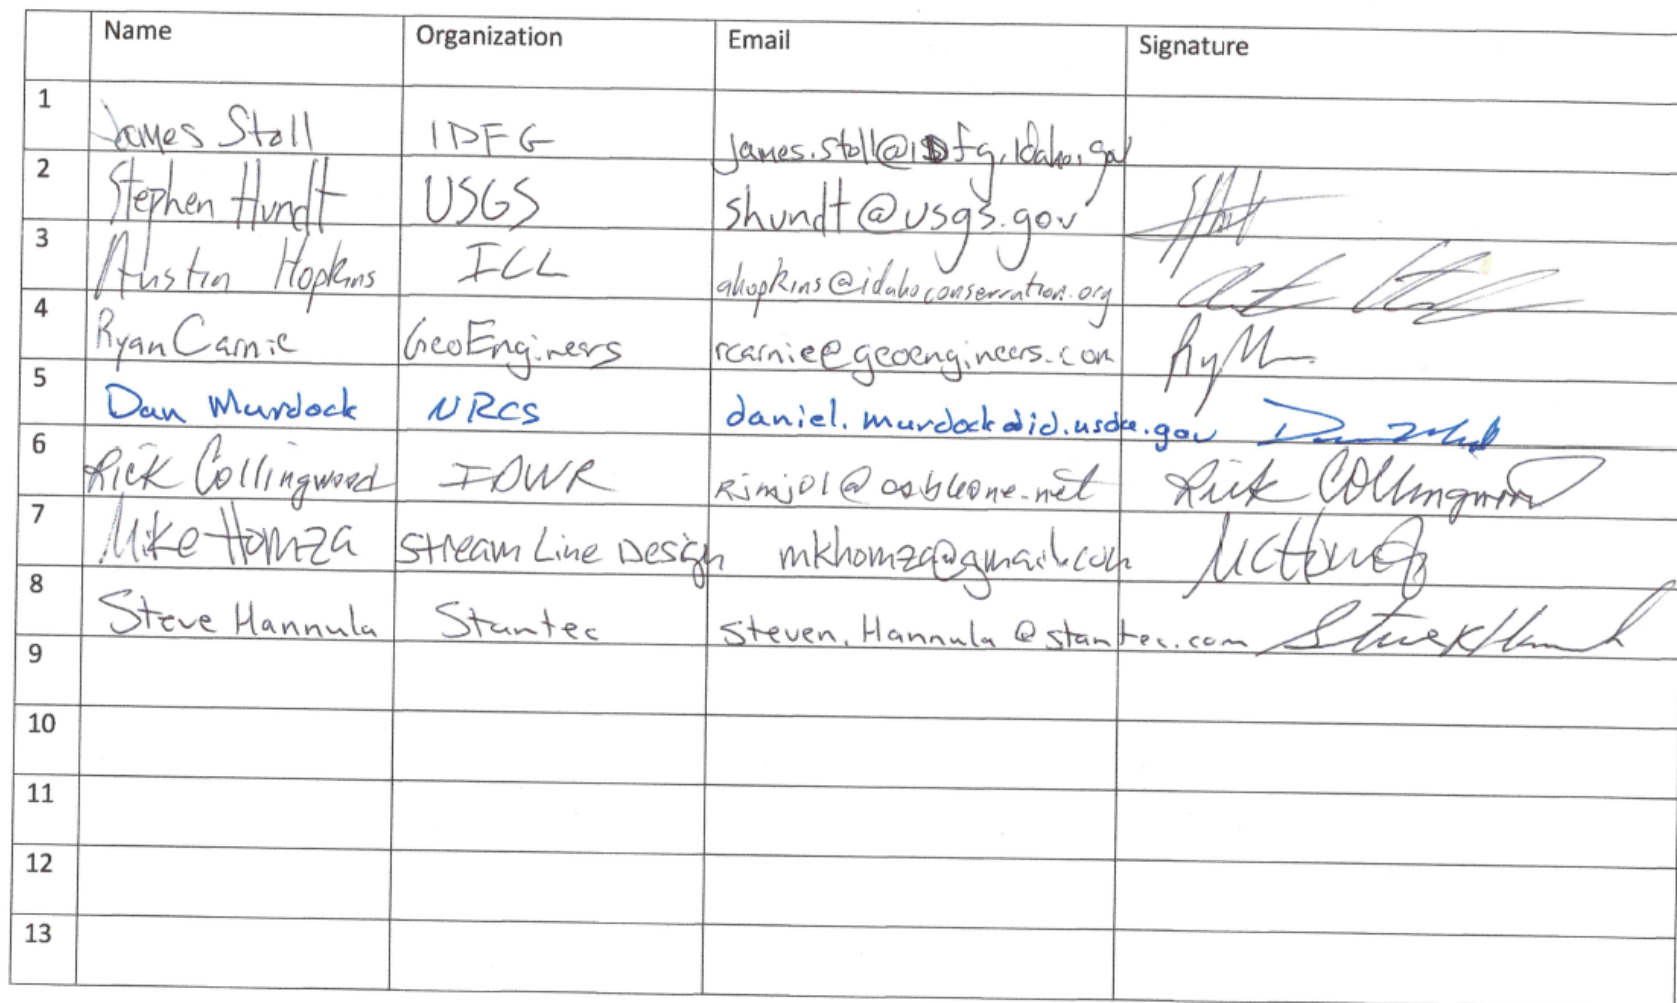 Name Organization Email Signature
1 James Stoll IDFG james.stoll@idfg.idaho.gov
2 Stephen Hundt USGS shundt@usgs.gov
3 Austin Hopkins ICL ahopkins@idahoconservation.org
4 Ryan Carnie GeoEngineers rcarnie@geoengineers.com
5 Dan Murdock NRCS daniel.murdock@id.usda.gov
6 Rick Collingwood IDWR rjmj01@cableone.net Rick Collingwood
7 Mike Homza Stream Line Design mkhomza@gmail.com
8 Steve Hannula Stantec Steven.Hannula@stantec.com
9
10
11
12
13